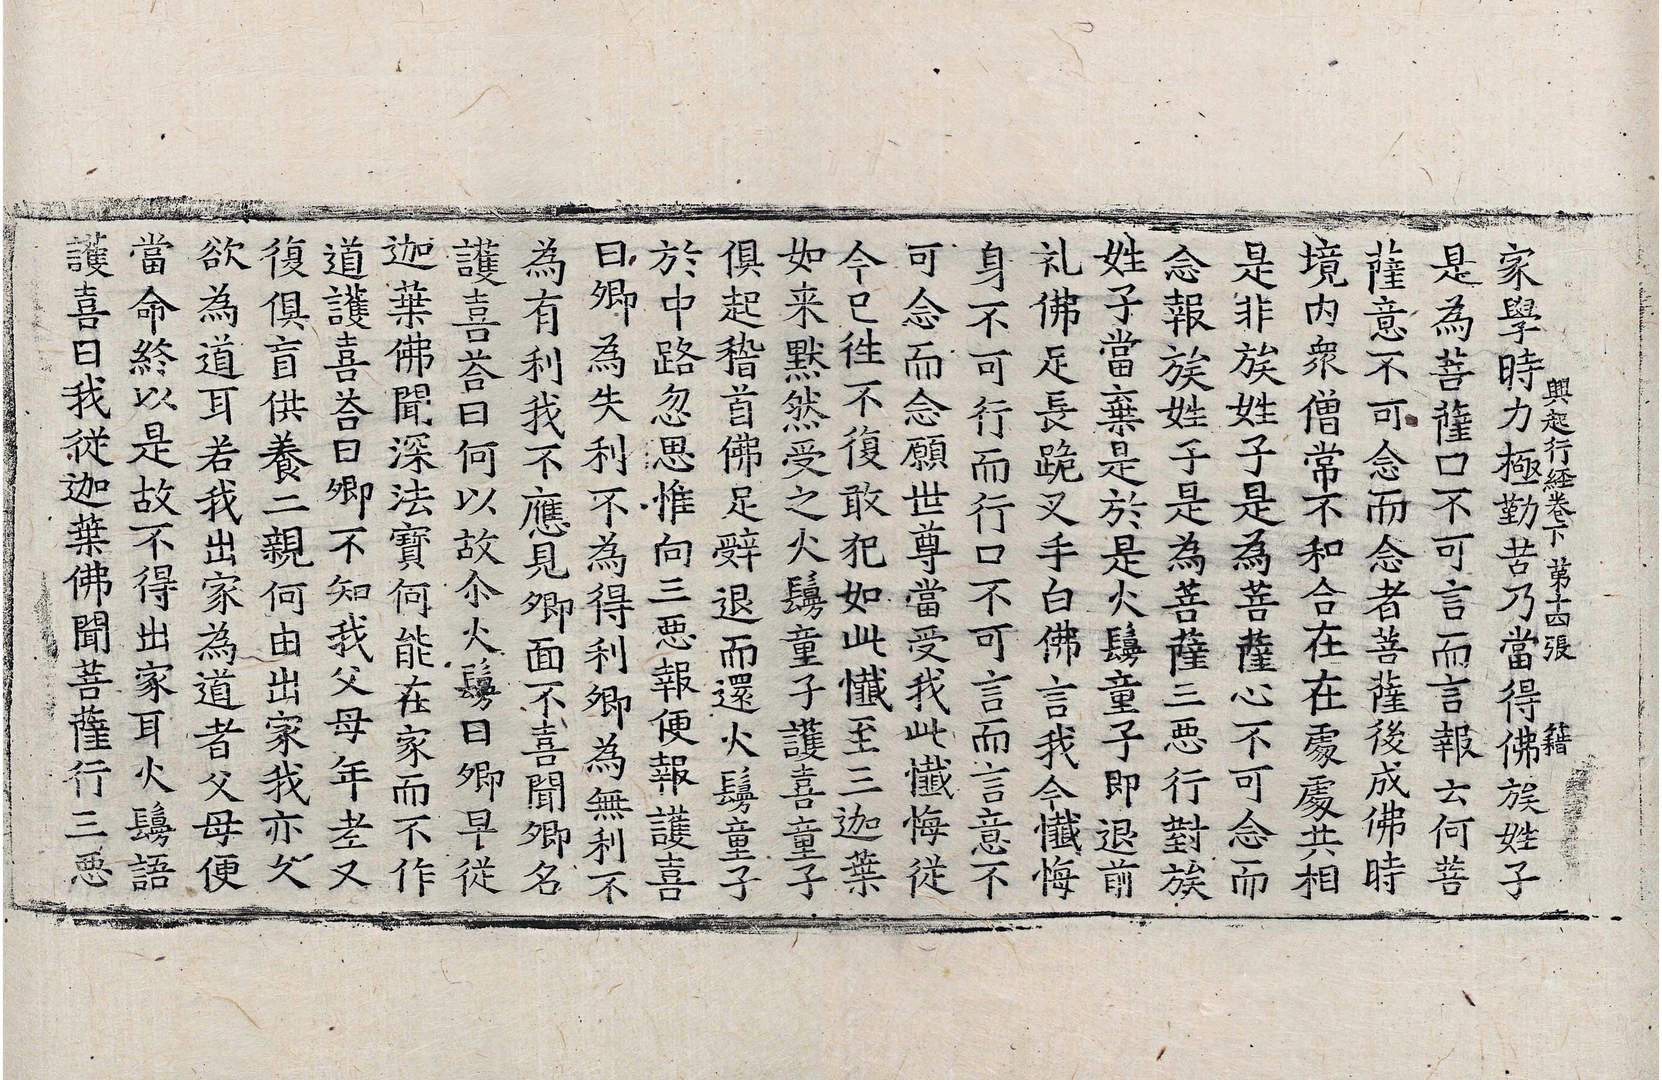 興起行経卷下 第十四張 籍
家學時力極勤苦乃當得佛族姓子
是為菩薩口不可言而言報云何菩
薩意不可念而念者菩薩後成佛時
境内衆僧常不和合在在處處共相
是非族姓子是為菩薩心不可念而
念報族姓子是為菩薩三惡行對族
姓子當棄是於是火鬘童子即退前
礼佛足長跪叉手白佛言我今懺悔
身不可行而行口不可言而言意不
可念而念願世尊當受我此懺悔從
今已徃不復敢犯如此懺至三迦葉
如来默然受之火鬘童子護喜童子
俱起稽首佛足辭退而還火鬘童子
於中路忽思惟向三惡報便報護喜
曰卿為失利不為得利卿為無利不
為有利我不應見卿面不喜聞卿名
護喜荅曰何以故尒火鬘曰卿早從
迦葉佛聞深法寶何能在家而不作
道護喜荅曰卿不知我父母年老又
復俱盲供養二親何由出家我亦久
欲為道耳若我出家為道者父母便
當命終以是故不得出家耳火鬘語
護喜曰我從迦葉佛聞菩薩行三惡